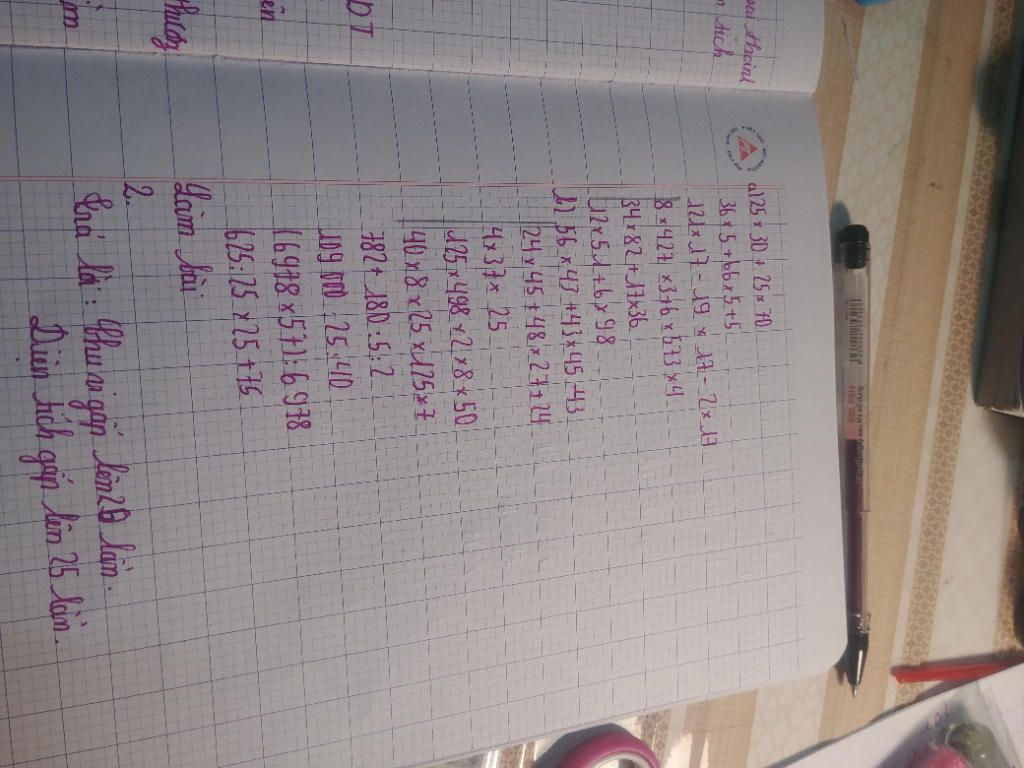 a) 125 × 30 + 25 × 70
36 × 5 + 66 × 5 + 5
12 × 17 - 19 × 17 - 2 × 17
8 × 427 × 3 + 6 × 573 × 4
34 × 82 + 17 × 36
12 × 51 + 6 × 98
b) 56 × 47 + 43 × 45 - 43
24 × 45 + 48 × 27 + 24
4 × 37 × 25
125 × 498 × 2 × 8 × 50
40 × 8 × 25 × 125 × 7
782 + 180 : 5 : 2
109 000 : 25 : 40
(6978 × 5 + 7) : 6 978
625 : 25 × 25 + 75
Làm lài:
2.
: Chu vi gấp lên lần.
Diện tích gấp lên 25 lần.
tích
DT